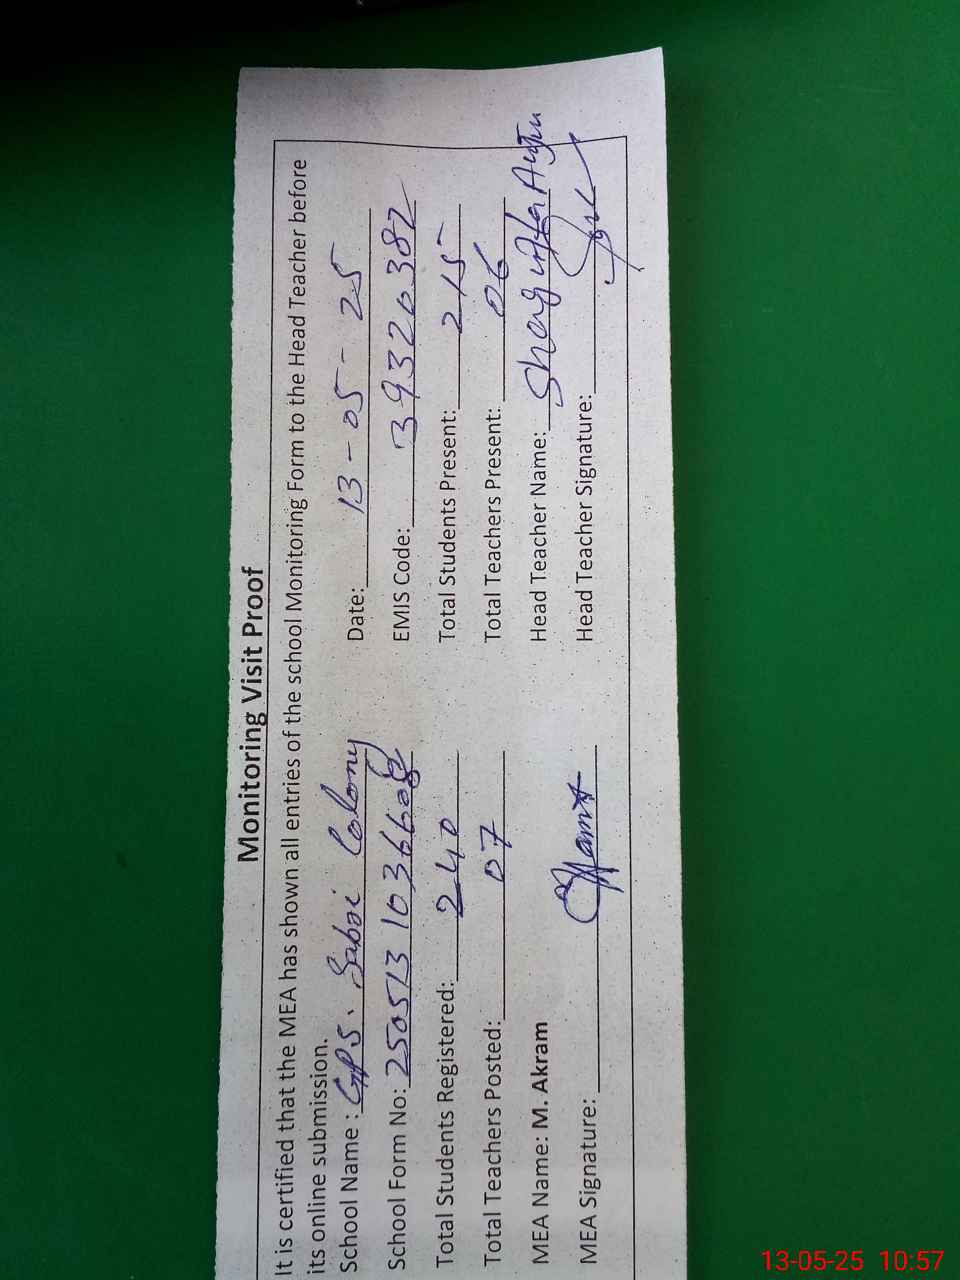 Monitoring Visit Proof
It is certified that the MEA has shown all entries of the school Monitoring Form to the Head Teacher before
its online submission.
School Name : GPS. Sabzi Colony Date: 13-05-25
School Form No: 250513 1036608 EMIS Code: 39320382
Total Students Registered: 240 Total Students Present: 215
Total Teachers Posted: 07 Total Teachers Present: 06
MEA Name: M. Akram Head Teacher Name:
MEA Signature: Head Teacher Signature:
13-05-25 10:57